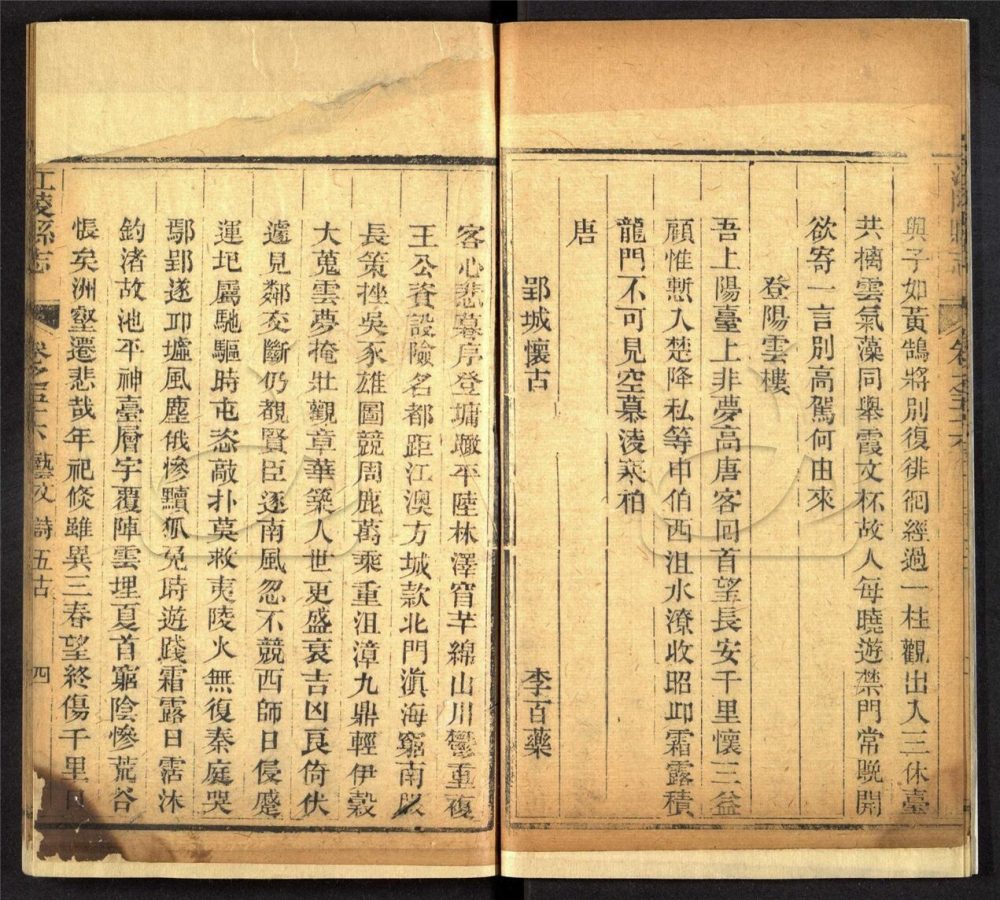 與子如黃鵠將別復徘徊經過一柱觀出入三休臺
共摛雲氣藻同舉霞文杯故人每曉遊禁門常晚開
欲寄一言別高駕何由來
登陽雲樓
吾上陽臺上非夢高唐客回首望長安千里懷三益
顧惟慙入楚降私等申伯西沮水潦收昭邱霜露積
龍門不可見空慕淩寒柏
唐
郢城懷古 李百藥
客心悲暮序登墉瞰平陸林澤窅芊綿山川鬱重復
王公資設險名都距江澳方城款北門滇海窮南服
長策挫吳豕雄圖競周鹿萬乘重沮漳九鼎輕伊穀
大蒐雲夢掩壯觀章華築人世更盛衰吉凶良倚伏
遽見鄰交斷仍覩賢臣逐南風忽不競西師日侵蹙
運圯屬馳驅時屯恣敲扑莫救夷陵火無復秦庭哭
鄢郢遂邱墟風塵俄慘黷狐兔時遊踐霜露日霑沐
釣渚故池平神臺層宇覆陣雲埋夏首窮陰慘荒谷
悵矣洲壑遷悲哉年祀倐雖異三春望終傷千里目
江陵縣志 卷之五十六 藝文 詩五古 四